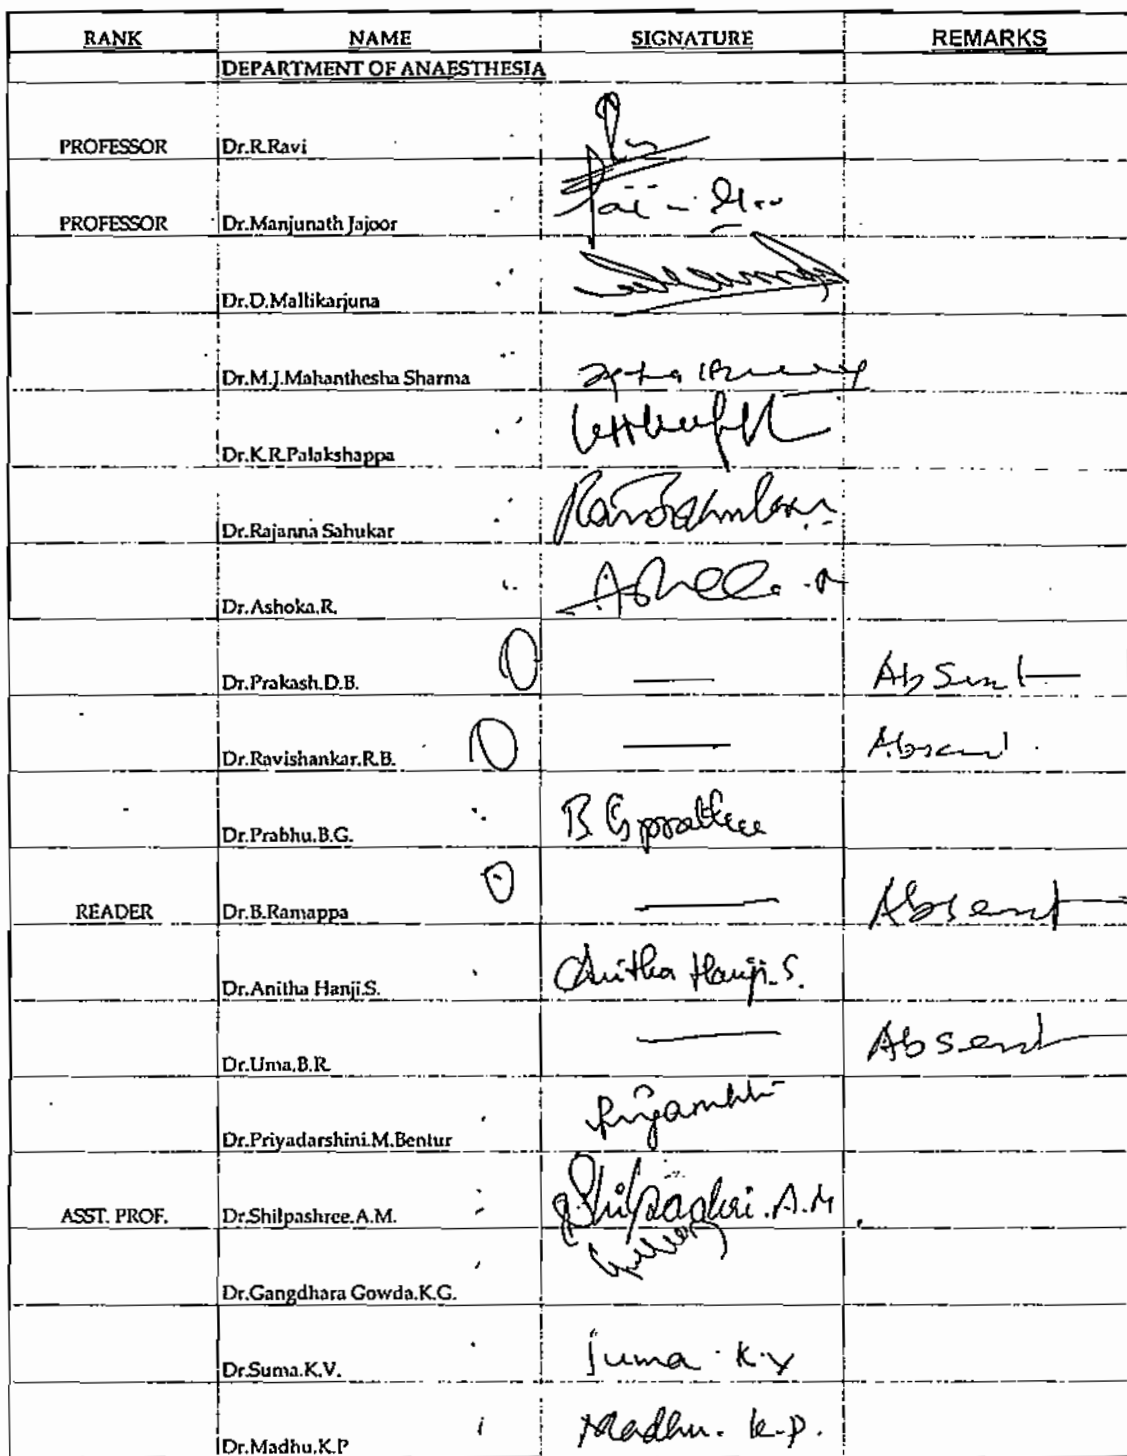 RANK NAME SIGNATURE REMARKS
DEPARTMENT OF ANAESTHESIA
PROFESSOR Dr.R.Ravi
PROFESSOR Dr.Manjunath Jajoor
Dr.D.Mallikarjuna
Dr.M.J.Mahanthesha Sharma
Dr.K.R.Palakshappa
Dr.Rajanna Sahukar
Dr.Ashoka.R.
Dr.Prakash.D.B. Absent
Dr.Ravishankar.R.B. Absent
Dr.Prabhu.B.G. B G
READER Dr.B.Ramappa Absent
Dr.Anitha Hanji.S. Anitha Hanji.S.
Dr.Uma.B.R. Absent
Dr.Priyadarshini.M.Bentur
ASST. PROF. Dr.Shilpashree.A.M. Shilpashri.A.M
Dr.Gangdhara Gowda.K.G.
Dr.Suma.K.V. Suma.K.V
Dr.Madhu.K.P Madhu.K.P.